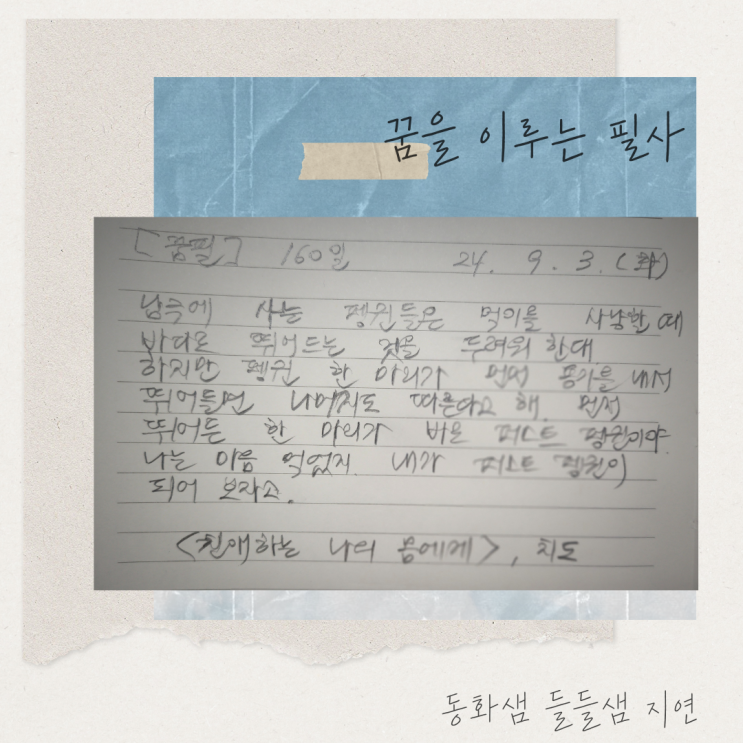 꿈을 이루는 필사
[꿈필] 160일 24. 9. 3. (화)
남극에 사는 펭귄들은 먹이를 사냥할 때
바다로 뛰어드는 것을 두려워 한대
하지만 펭귄 한 마리가 먼저 용기를 내서
뛰어들면 나머지도 따른다고 해. 먼저
뛰어든 한 마리가 바로 퍼스트 펭귄이야.
나는 마음 먹었지. 내가 퍼스트 펭귄이
되어 보자고.
<친애하는 나의 몸에게>, 치도
동화샘 들들샘 지연